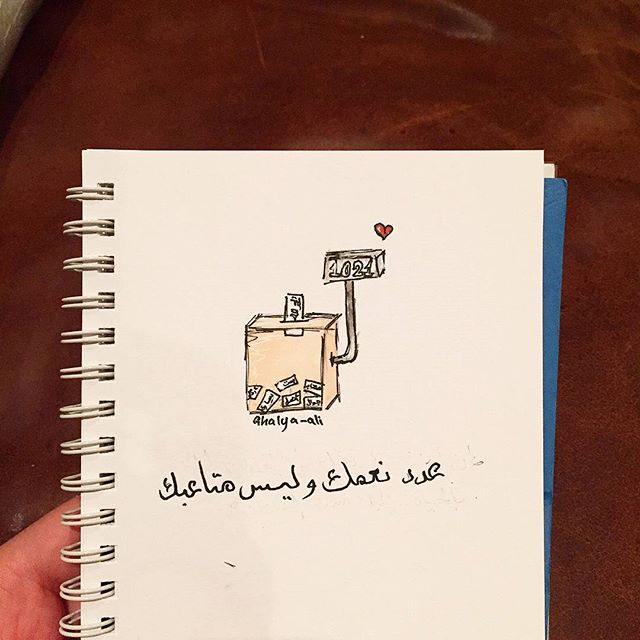 1021
ahalya-ali
عدد نعمك وليس متاعبك